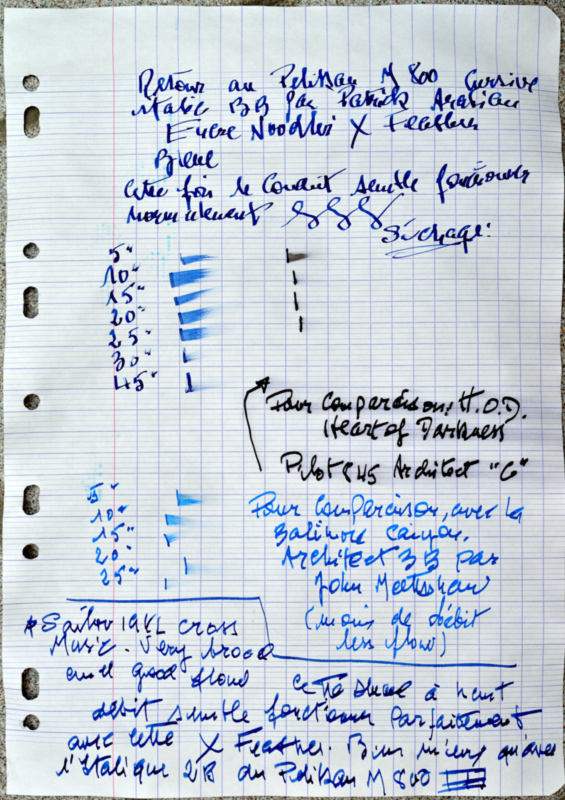 Retour au Pelikan M 800 Cursive
italic BB par Patrick
Encre Noodler's X Feather
Blue
Cette fois le conduit semble fonctionner
normalement
Séchage:
5"
10"
15"
20"
25"
30"
45"
Pour comparaison: H.O.D.
Heart of Darkness
Pilot 845 Architect "C"
5"
10"
15"
20"
25"
Pour comparaison, avec la
canyon.
Architect 3B par
John
(moins de débit
less flow)
* Sailor cross
Music. Very broad
and good
Cette plume à haut
débit semble fonctionner parfaitement
avec cette X Feather. Bien mieux qu'avec
l'Italique 2B du Pelikan M 800